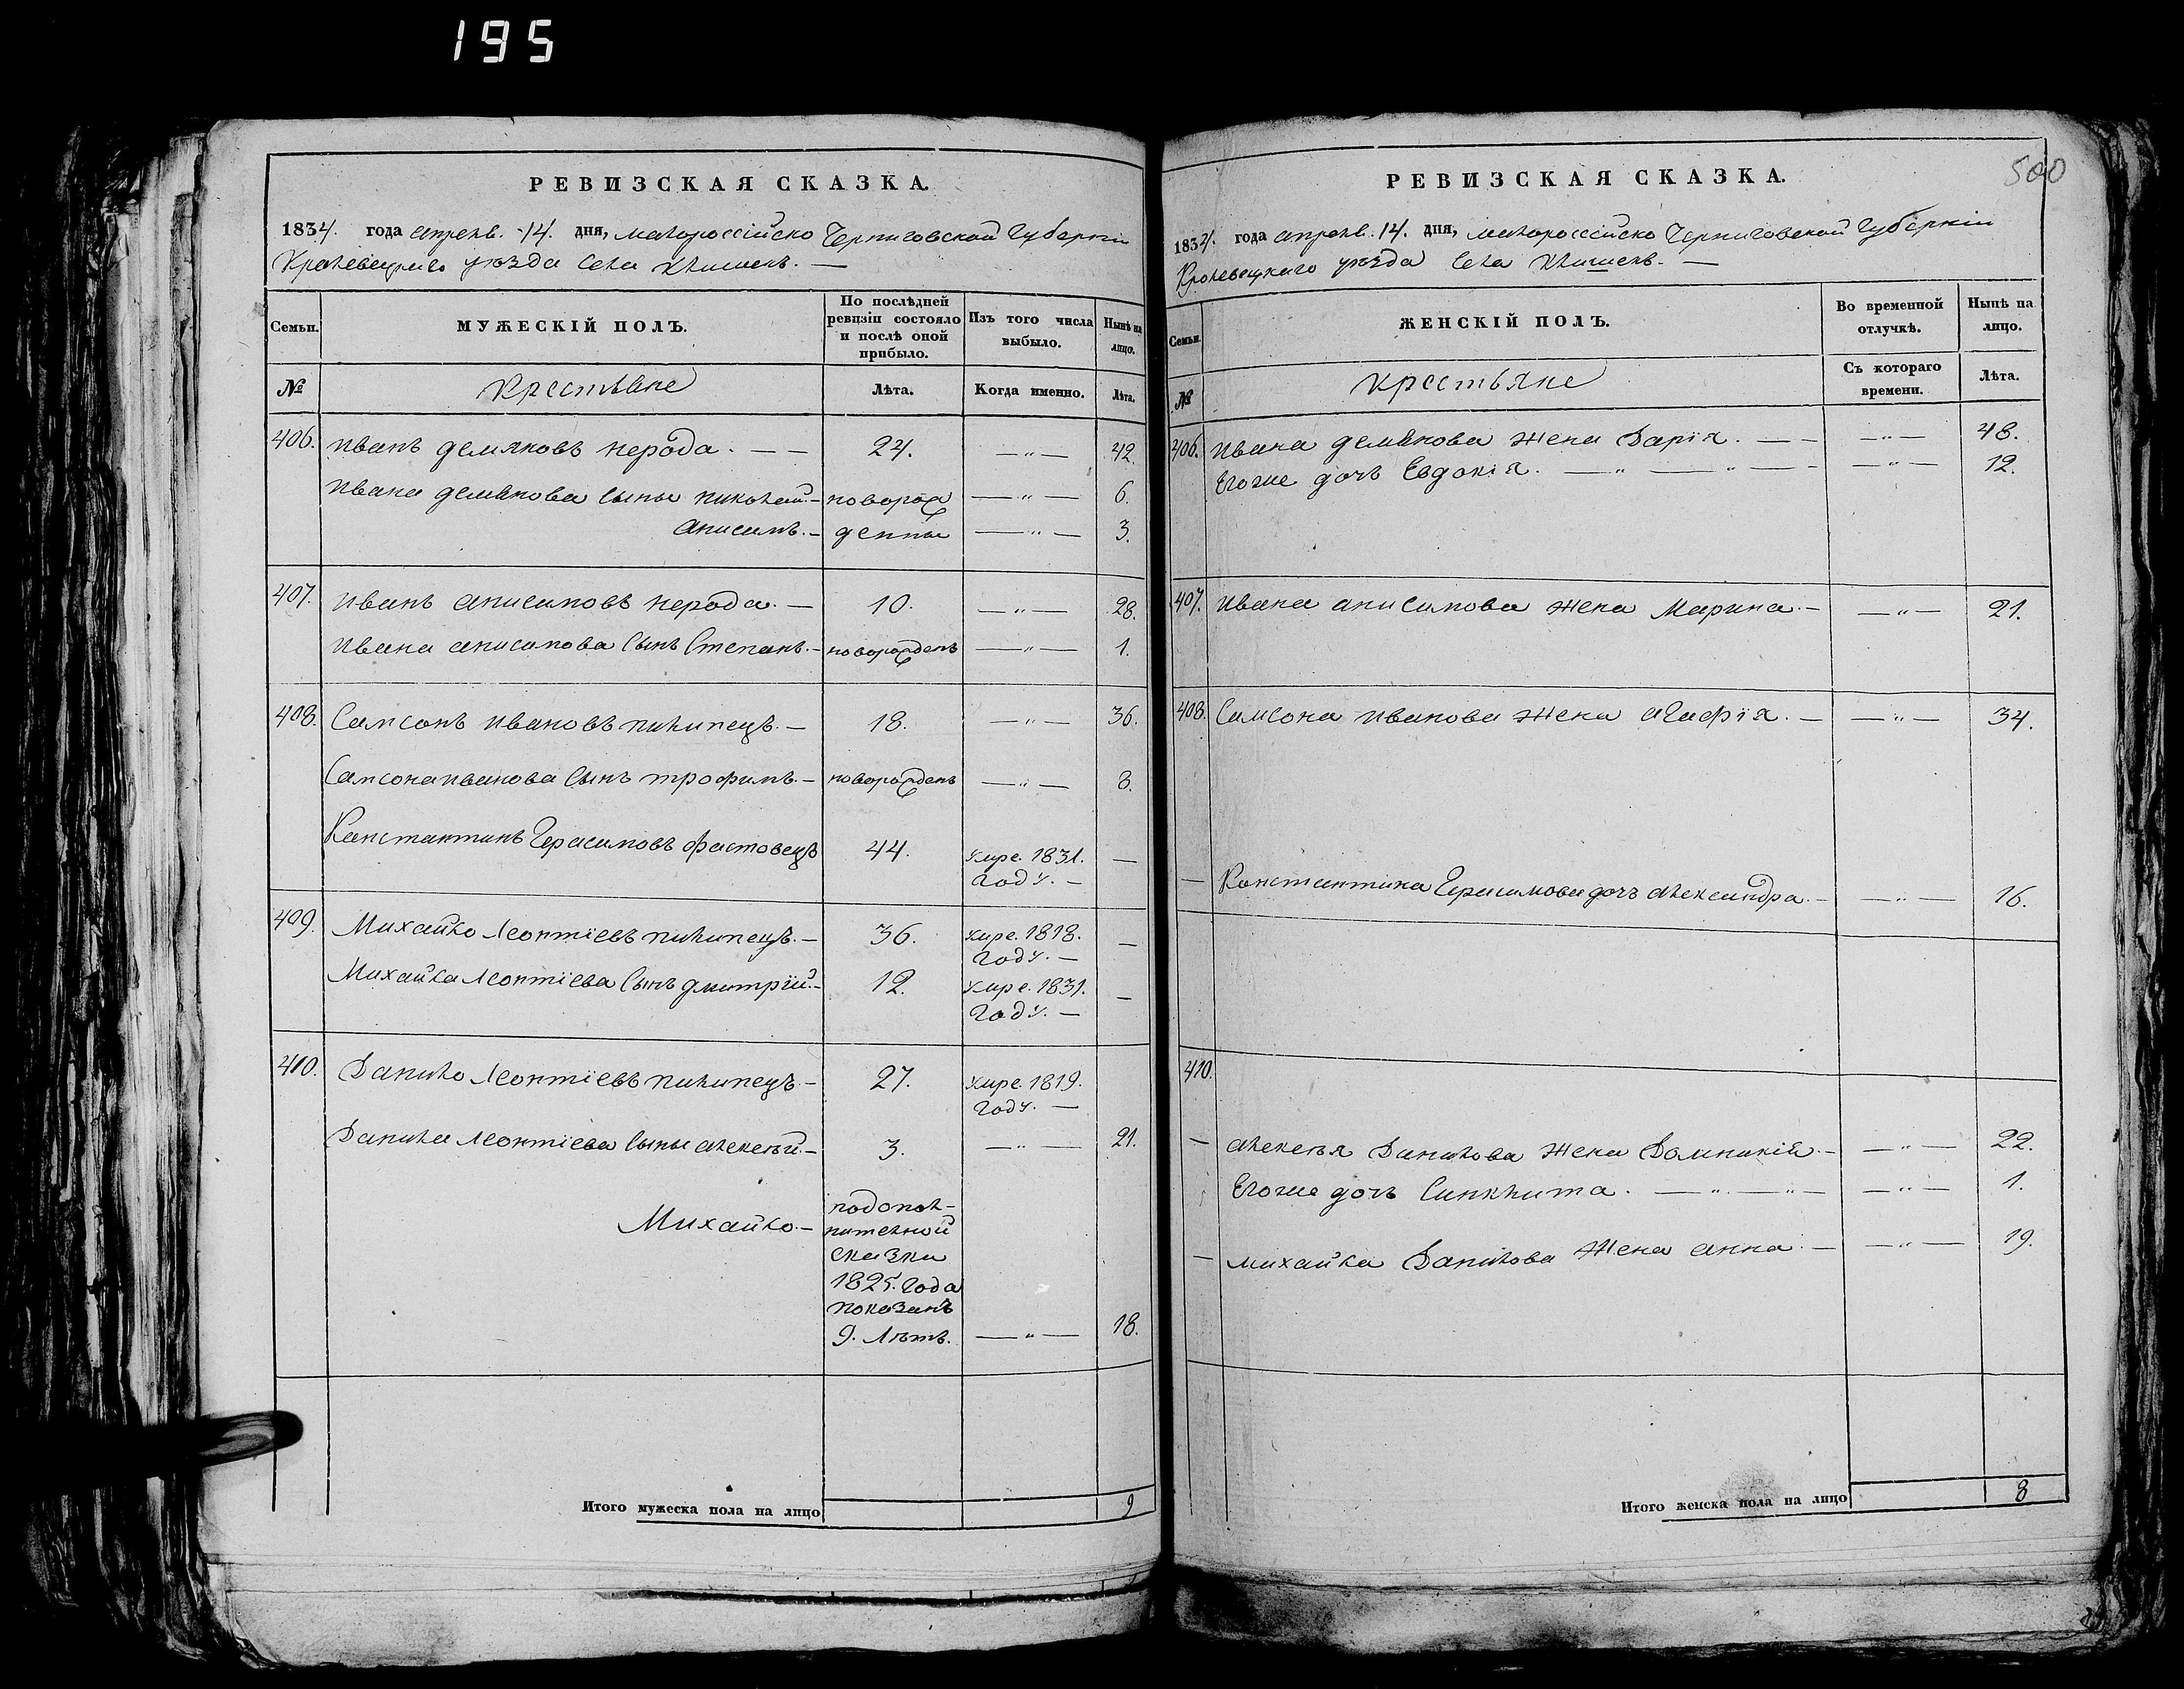 195
РЕВИЗСКАЯ СКАЗКА.
1834. года апреля. 14. дня, малороссійско Черниговской Губерніи
Кролевецкаго уезда Села Клишекъ. —
Семьи.
МУЖЕСКІЙ ПОЛЪ.
По послѣдней
ревизіи состояло
и послѣ оной
прибыло.
Изъ того числа
выбыло.
Нынѣ на
лицо.
№
Крестьяне
Лѣта.
Когда именно.
Лѣта.
406. Иванъ демяновъ нерода. — — 24. — „ — 42.
Ивана демянова Сыны николай. — новорож — „ — 6.
Анисимъ. — денны — „ — 3.
407. Иванъ анисимовъ нерода. — 10. — „ — 28.
Ивана анисимова Сынъ Степанъ. — новорожденъ — „ — 1.
408. Самсонъ ивановъ пилипецъ. — 18. — „ — 36.
Самсона иванова Сынъ трофимъ. — новорожденъ — „ — 8.
Канстантинъ Герасимовъ фастовецъ 44. умре. 1831. —
году. —
409. Михайло Леонтіевъ пилипецъ. — 36. умре. 1818. —
году. —
Михайла Леонтіева Сынъ дмитрій. — 12. умре. 1831. —
году. —
410. Данило Леонтіевъ пилипецъ. — 27. умре. 1819.
году. —
Данила Леонтіева Сыны алексѣй. — 3. — „ — 21.
подопол-
Михайло. — нителной
сказки
1825. года
показанъ
9. Лѣтъ. — „ — 18.
Итого мужеска пола на лицо 9
РЕВИЗСКАЯ СКАЗКА.
500
1834. года апреля. 14. дня, малороссійско Черниговской Губерніи
Кролевецкаго уезда Села Клишекъ. —
Семьи.
ЖЕНСКІЙ ПОЛЪ.
Во временной
отлучкѣ.
Нынѣ на
лицо.
№
крестьяне
Съ котораго
времени.
Лѣта.
406. Ивана демянова жена Дарія. — — — „ — 48.
Егоже дочь Евдокія. — „ — „ — — „ — 12.
407. Ивана анисимова жена Марина. — — „ — 21.
408. Самсона иванова жена агафія. — — „ — 34.
— Константина Герасимова дочъ александра. — — „ — 16.
410.
— алексѣя Данилова жена Домникія. — — „ — 22.
Егоже дочъ Синклита. — „ — „ — — „ — 1.
— михайла Данилова жена анна. — — „ — 19.
Итого женска пола на лицо 8